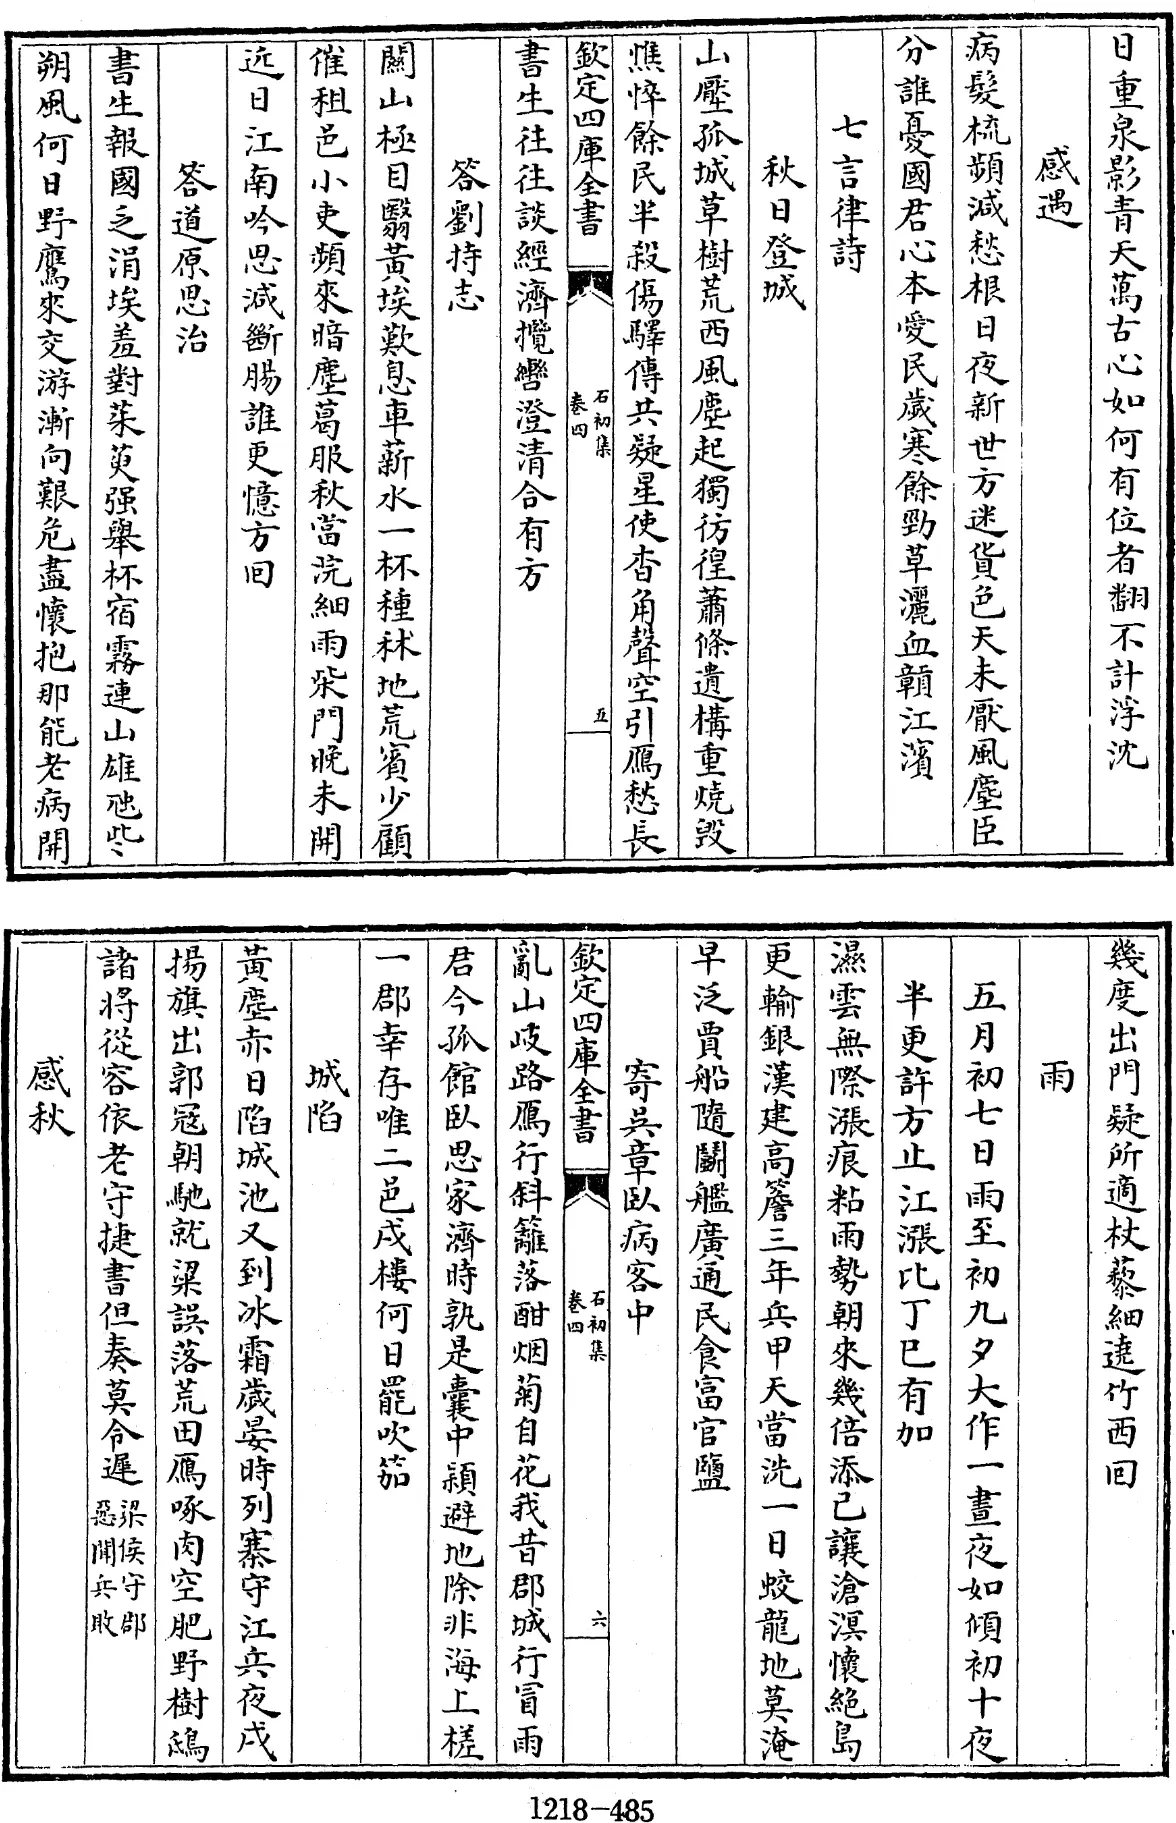 日重泉影青天萬古心如何有位者翻不計浮沈
感遇
病髮梳頻減愁根日夜新世方迷貨色天未厭風塵臣
分誰憂國君心本愛民歲寒餘勁草灑血贑江濱
七言律詩
秋日登城
山壓孤城草樹荒西風塵起獨彷徨蕭條遺構重燒毀
憔悴餘民半殺傷驛傳共疑星使杳角聲空引鴈愁長
欽定四庫全書
石初集
卷四
五
書生往往談經濟攬轡澄清合有方
答劉持志
關山極目翳黃埃歎息車薪水一杯種秫地荒賓少顧
催租邑小吏頻來暗塵葛服秋當浣細雨柴門晚未開
近日江南吟思減斷腸誰更憶方回
答道原思治
書生報國乏涓埃羞對茱萸强舉杯宿霧連山雄虺些
朔風何日野鷹來交游漸向艱危盡懷抱那能老病開
幾度出門疑所適杖藜細遶竹西回
雨
五月初七日雨至初九夕大作一晝夜如傾初十夜
半更許方止江漲比丁巳有加
濕雲無際漲痕粘雨勢朝來幾倍添已讓滄溟懷絶島
更輸銀漢建高簷三年兵甲天當洗一日蛟龍地莫淹
早泛賈船隨鬭艦廣通民食富官鹽
寄吳章臥病客中
欽定四庫全書
石初集
卷四
六
亂山歧路鴈行斜籬落酣烟菊自花我昔郡城行冒雨
君今孤館臥思家濟時孰是囊中穎避地除非海上槎
一郡幸存唯二邑戍樓何日罷吹笳
城陷
黃塵赤日陷城池又到冰霜歲晏時列寨守江兵夜戍
揚旗出郭冦朝馳就粱誤落荒田鴈啄肉空肥野樹鴟
諸將從容依老守捷書但奏莫令遲梁侯守郡
惡聞兵敗
感秋
1218-485